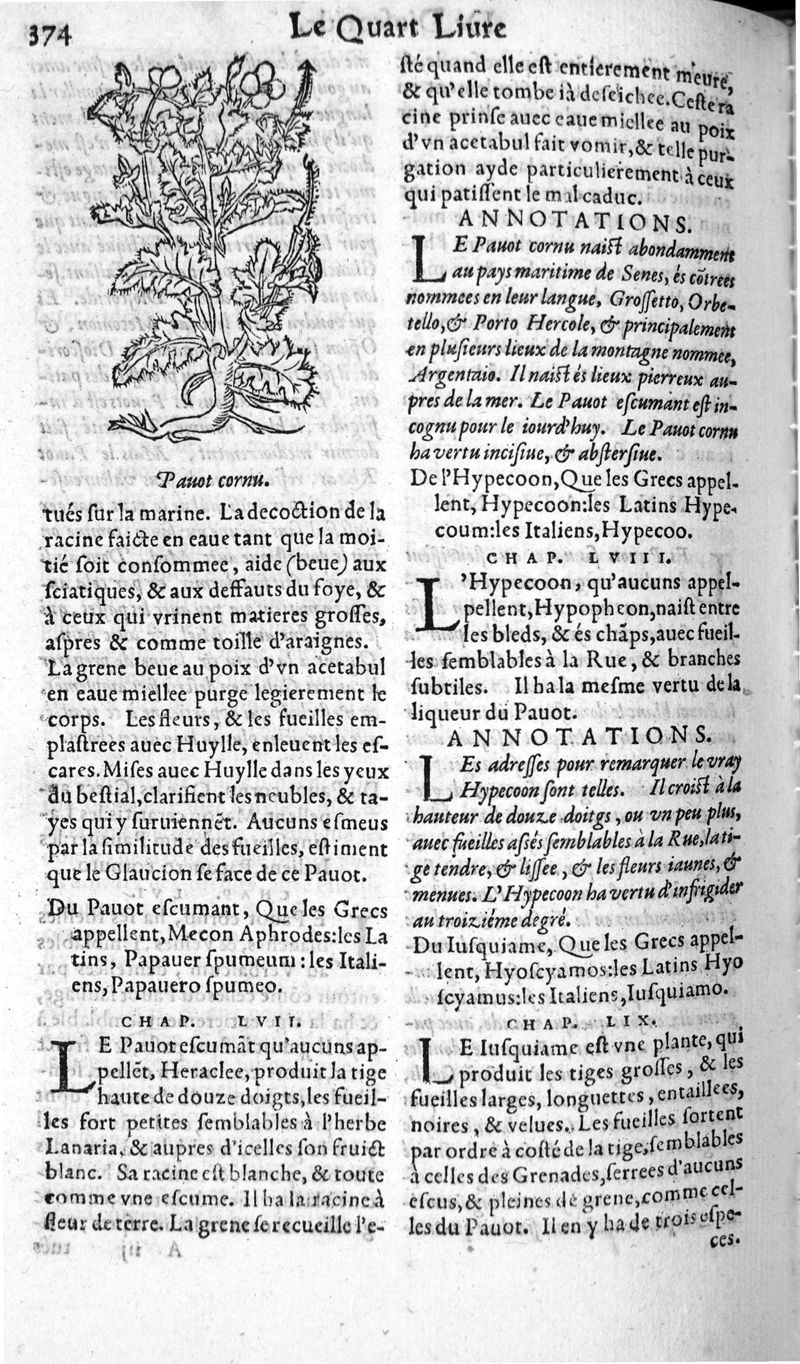 374
Le Quart Liure
Pauot cornu.
tués ſur la marine. La decoction de la
racine faicte en eaue tant que la moi-
tié ſoit conſommee, aide (beue) aux
ſciatiques, & aux deffauts du foye, &
à ceux qui vrinent matieres groſſes,
aſpres & comme toille d'araignes.
La grene beue au poix d'vn acetabul
en eaue miellee purge legierement le
corps. Les fleurs, & les fueilles em-
plaſtrees auec Huylle, enleuent les eſ-
cares. Miſes auec Huylle dans les yeux
du beſtial, clarifient les neubles, & ta-
yes qui y ſuruiennēt. Aucuns eſmeus
par la ſimilitude des fueilles, eſtiment
que le Glaucion ſe face de ce Pauot.
Du Pauot eſcumant, Que les Grecs
appellent, Mecon Aphrodes: les La
tins, Papauer ſpumeum: les Itali-
ens, Papauero ſpumeo.
CHAP. LVII.
LE Pauot eſcumāt qu'aucuns ap-
pellēt, Heraclee, produit la tige
haute de douze doigts, les fueil-
les fort petites ſemblables à l'herbe
Lanaria, & aupres d'icelles ſon fruict
blanc. Sa racine eſt blanche, & toute
comme vne eſcume. Il ha la racine à
fleur de terre. La grene ſe recueille l'e-
ſté quand elle eſt entierement meure,
& qu'elle tombe ià deſeichee. Ceſte ra
cine prinſe auec eaue miellee au poix
d'vn acetabul fait vomir, & telle pur-
gation ayde particulierement à ceux
qui patiſſent le mal caduc.
ANNOTATIONS.
LE Pauot cornu naiſt abondamment
au pays maritime de Senes, és cōtrees
nommees en leur langue, Groſſetto, Orbe-
tello, & Porto Hercole, & principalement
en pluſieurs lieux de la montagne nommee,
Argentaio. Il naiſt és lieux pierreux au-
pres de la mer. Le Pauot eſcumant eſt in-
cognu pour le iourd'huy. Le Pauot cornu
ha vertu inciſiue, & abſterſiue.
De l'Hypecoon, Que les Grecs appel-
lent, Hypecoon: les Latins Hype-
coum: les Italiens, Hypecoo.
CHAP. LVIII.
L'Hypecoon, qu'aucuns appel-
pellent, Hypopheon, naiſt entre
les bleds, & és chāps, auec fueil-
les ſemblables à la Rue, & branches
ſubtiles. Il ha la meſme vertu de la
liqueur du Pauot.
ANNOTATIONS.
LEs adreſſes pour remarquer le vray
Hypecoon ſont telles. Il croiſt à la
hauteur de douze doitgs, ou vn peu plus,
auec fueilles aſsés ſemblables à la Rue, la ti-
ge tendre, & liſſee, & les fleurs iaunes, &
menues. L'Hypecoon ha vertu d'infrigider
au troiziéme degré.
Du Iuſquiame, Que les Grecs appel-
lent, Hyoſcyamos: les Latins Hyo
ſcyamus: les Italiens, Iuſquiamo.
CHAP. LIX.
LE Iuſquiame eſt vne plante, qui
produit les tiges groſſes, & les
fueilles larges, longuettes, entaillees,
noires, & velues. Les fueilles ſortent
par ordre à coſté de la tige, ſemblables
à celles des Grenades, ſerrees d'aucuns
eſcus, & pleines de grene, comme cel-
les du Pauot. Il en y ha de trois eſpe-
ces.